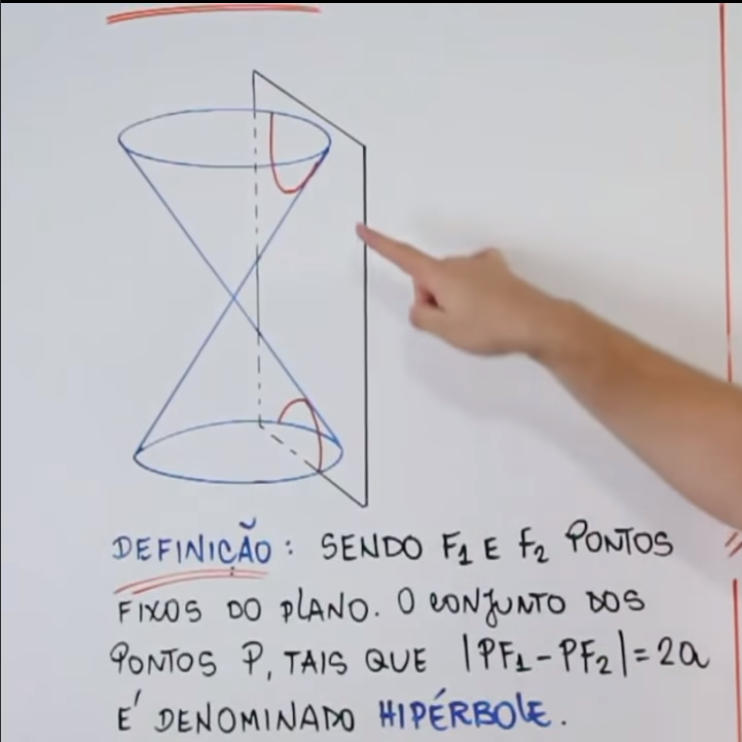 DEFINIÇÃO: SENDO F₁ E F₂ PONTOS
FIXOS DO PLANO. O CONJUNTO DOS
PONTOS P, TAIS QUE |PF₁-PF₂|=2a
É DENOMINADO HIPÉRBOLE.